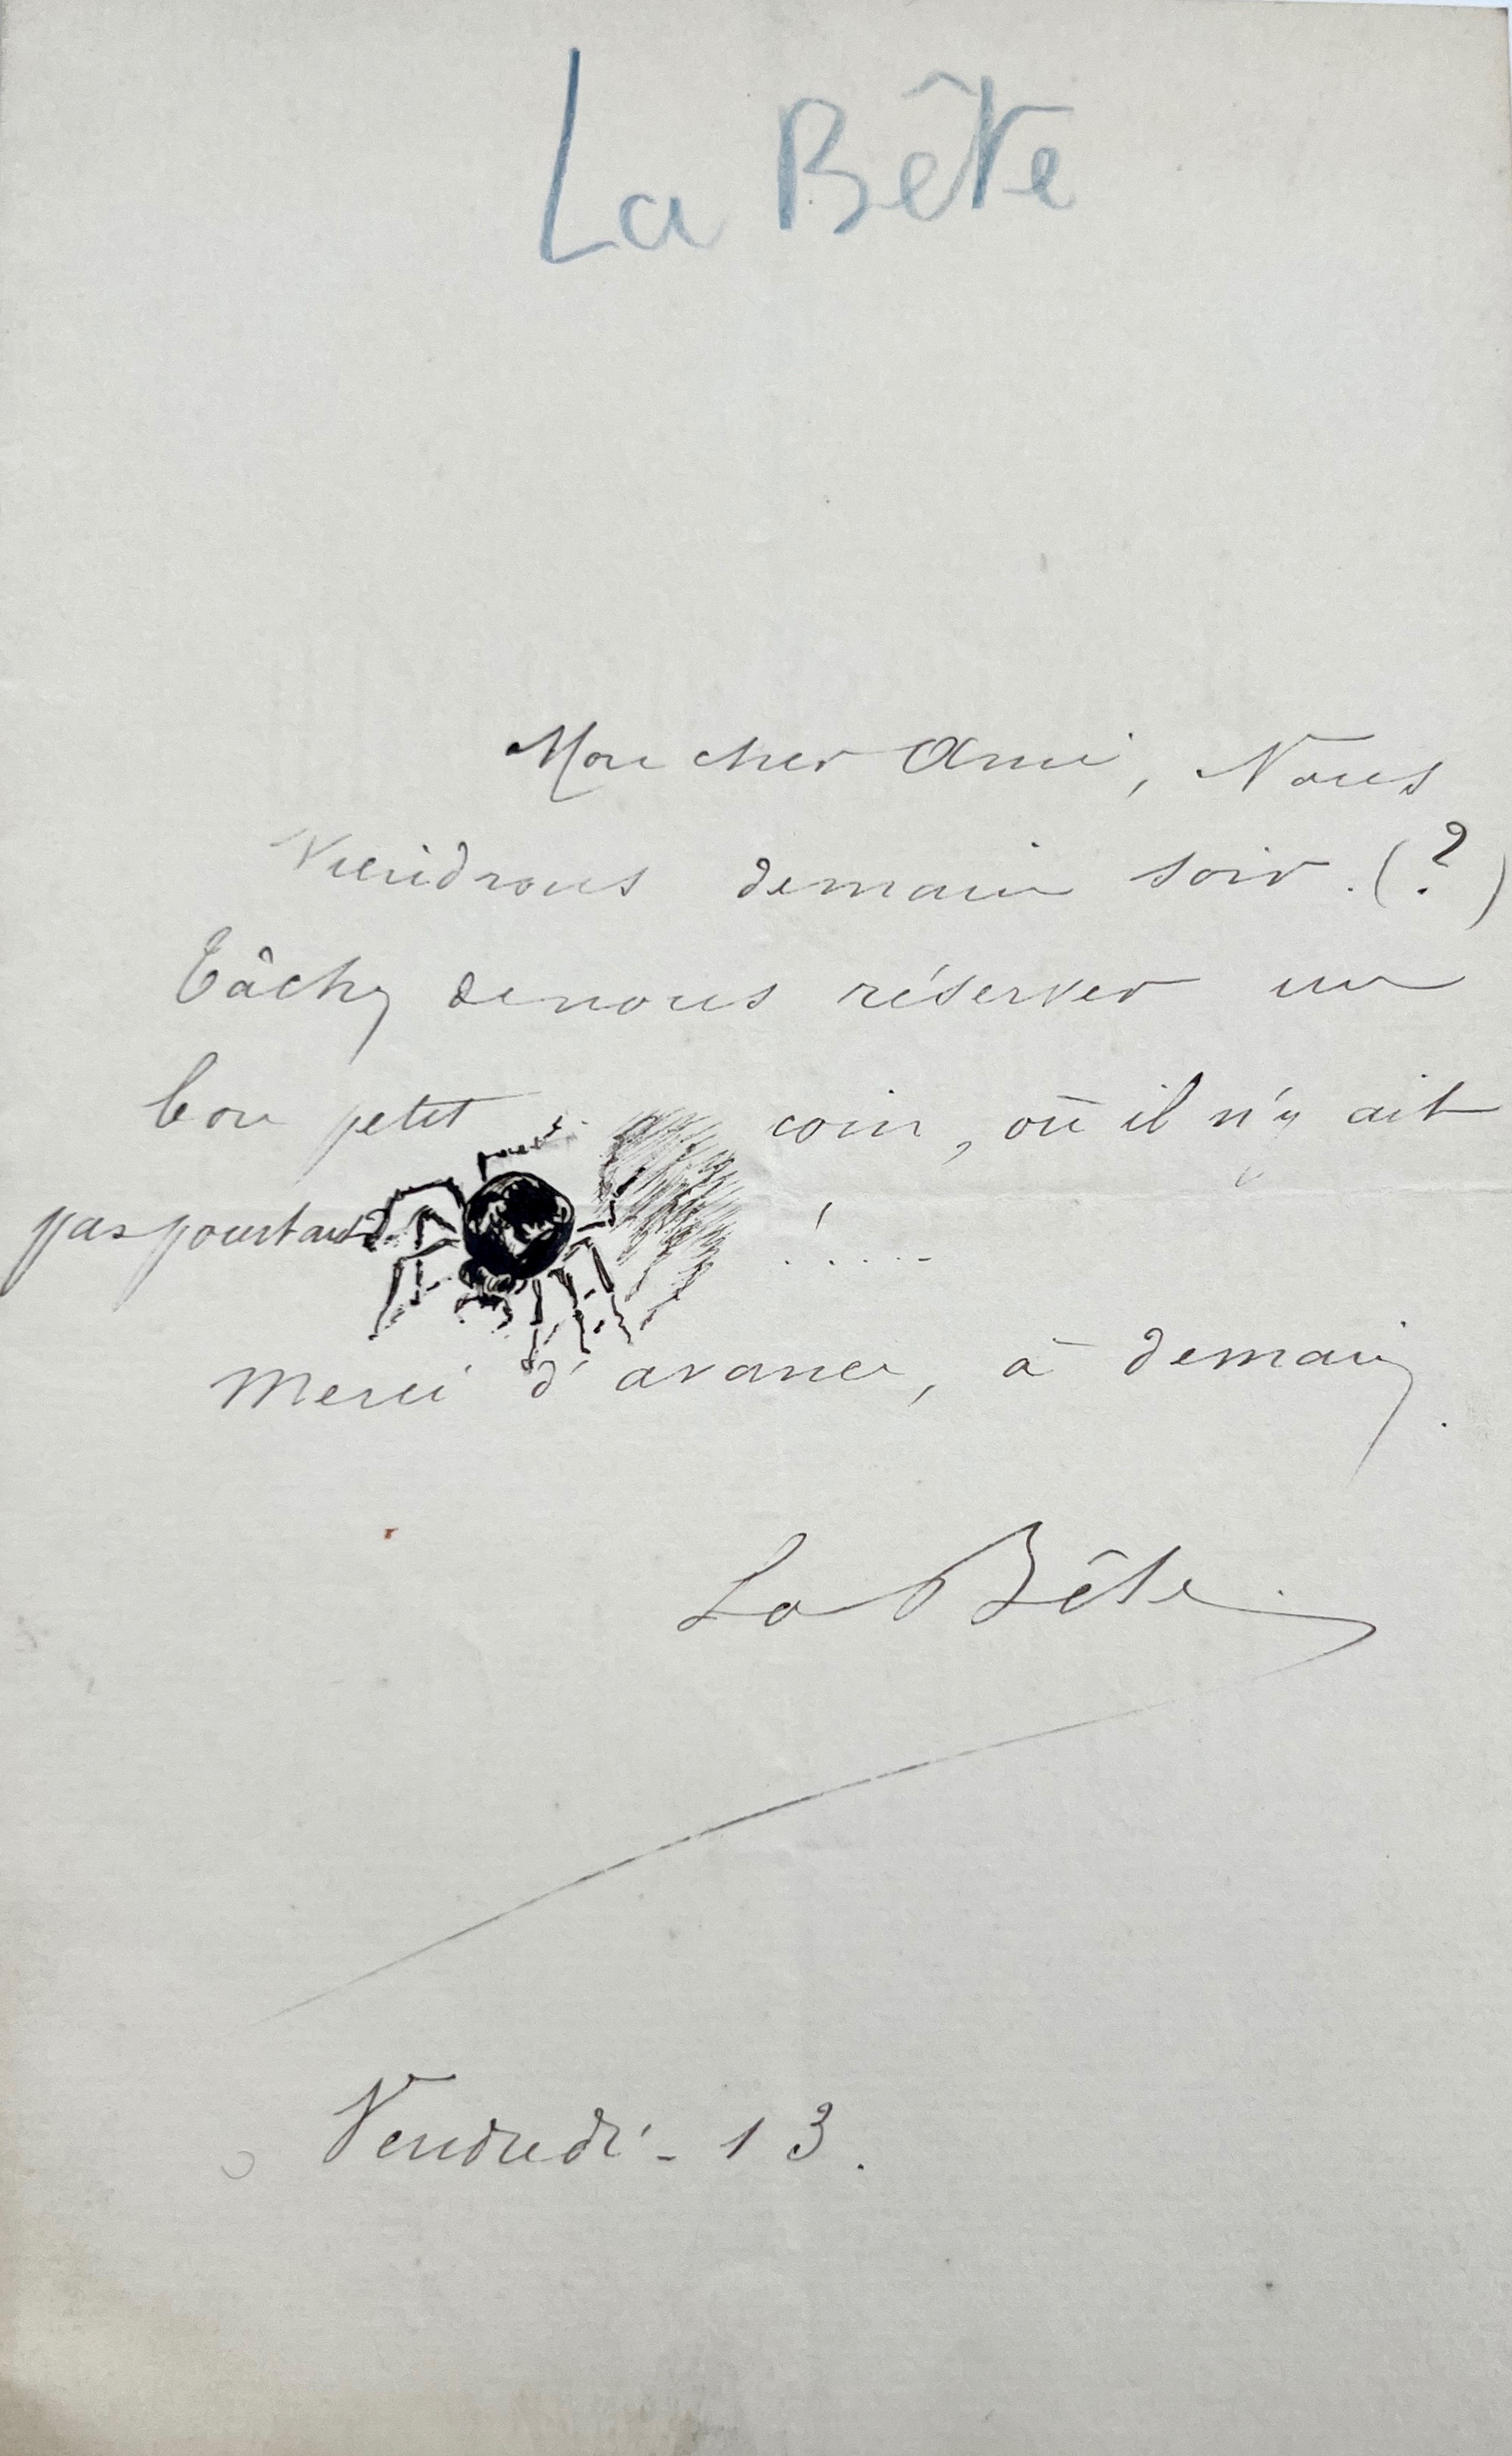 La Bête
Mon cher Ami, Nous
viendrons demain soir. (?)
Tâchez de nous réserver un
bon petit coin, où il n'y ait
pas pourtant d' ! .....
Merci d'avance, à demain.
La Bête
Vendredi - 13.